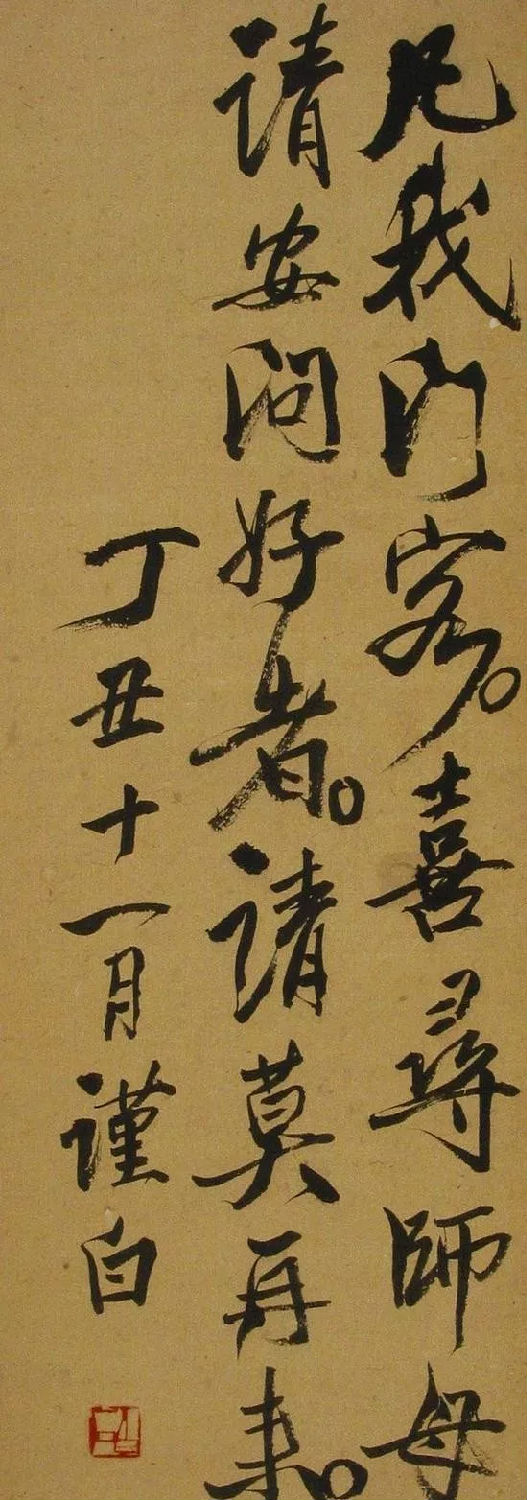 凡我門客。喜尋師母
請安問好者。請莫再來。
丁丑十一月謹白